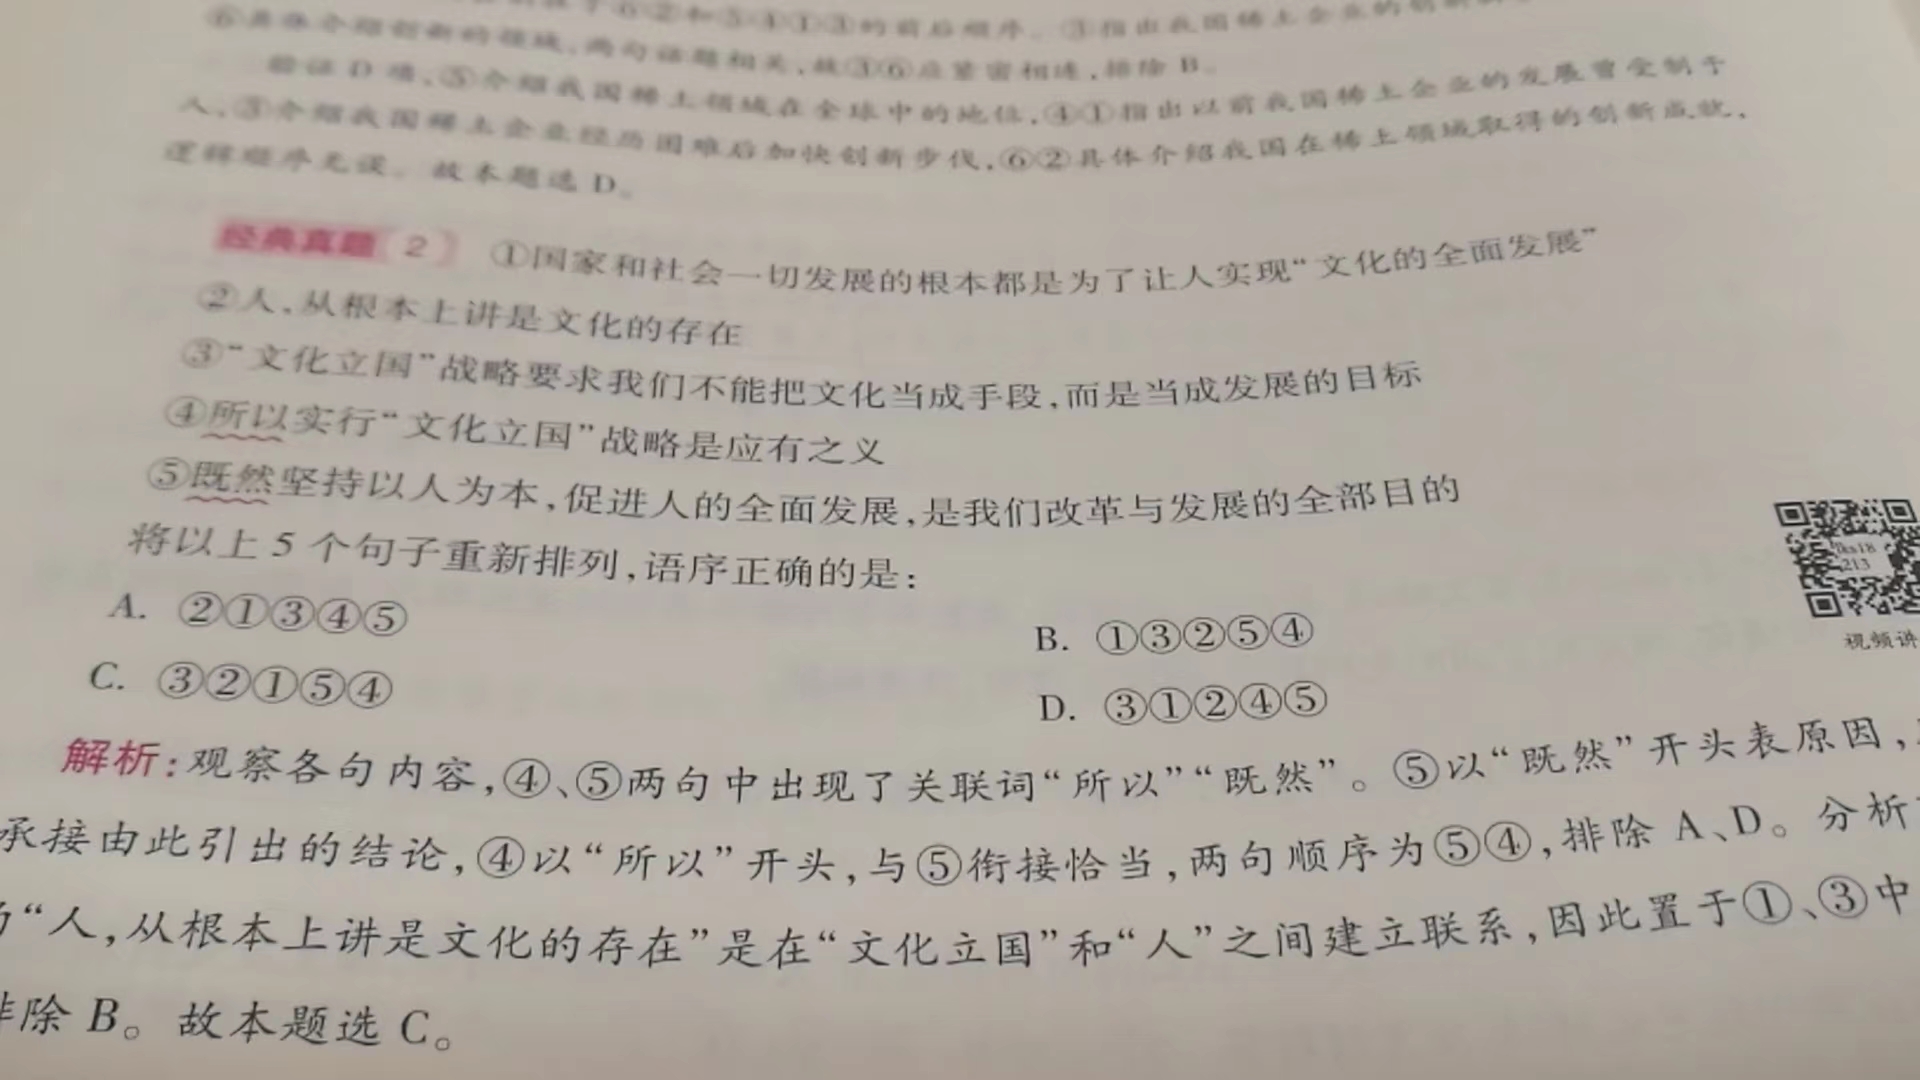 的前后顺序。③指出我国稀土企业的创新
⑥具体介绍创新的领域,两句话题相关,故③⑥应紧密相连,排除 B。
验证 D 项,⑤介绍我国稀土领域在全球中的地位,④①指出以前我国稀土企业的发展曾受制于
人,③介绍我国稀土企业经历困难后加快创新步伐,⑥②具体介绍我国在稀土领域取得的创新成就,
逻辑顺序无误。故本题选 D。
经典真题(2) ①国家和社会一切发展的根本都是为了让人实现“文化的全面发展”
②人,从根本上讲是文化的存在
③“文化立国”战略要求我们不能把文化当成手段,而是当成发展的目标
④所以实行“文化立国”战略是应有之义
⑤既然坚持以人为本,促进人的全面发展,是我们改革与发展的全部目的
将以上 5 个句子重新排列,语序正确的是:
A. ②①③④⑤
B. ①③②⑤④
C. ③②①⑤④
D. ③①②④⑤
213
视频讲
解析:观察各句内容,④、⑤两句中出现了关联词“所以”“既然”。⑤以“既然”开头表原因,
承接由此引出的结论,④以“所以”开头,与⑤衔接恰当,两句顺序为⑤④,排除 A、D。分析
“人,从根本上讲是文化的存在”是在“文化立国”和“人”之间建立联系,因此置于①、③中
排除 B。故本题选 C。